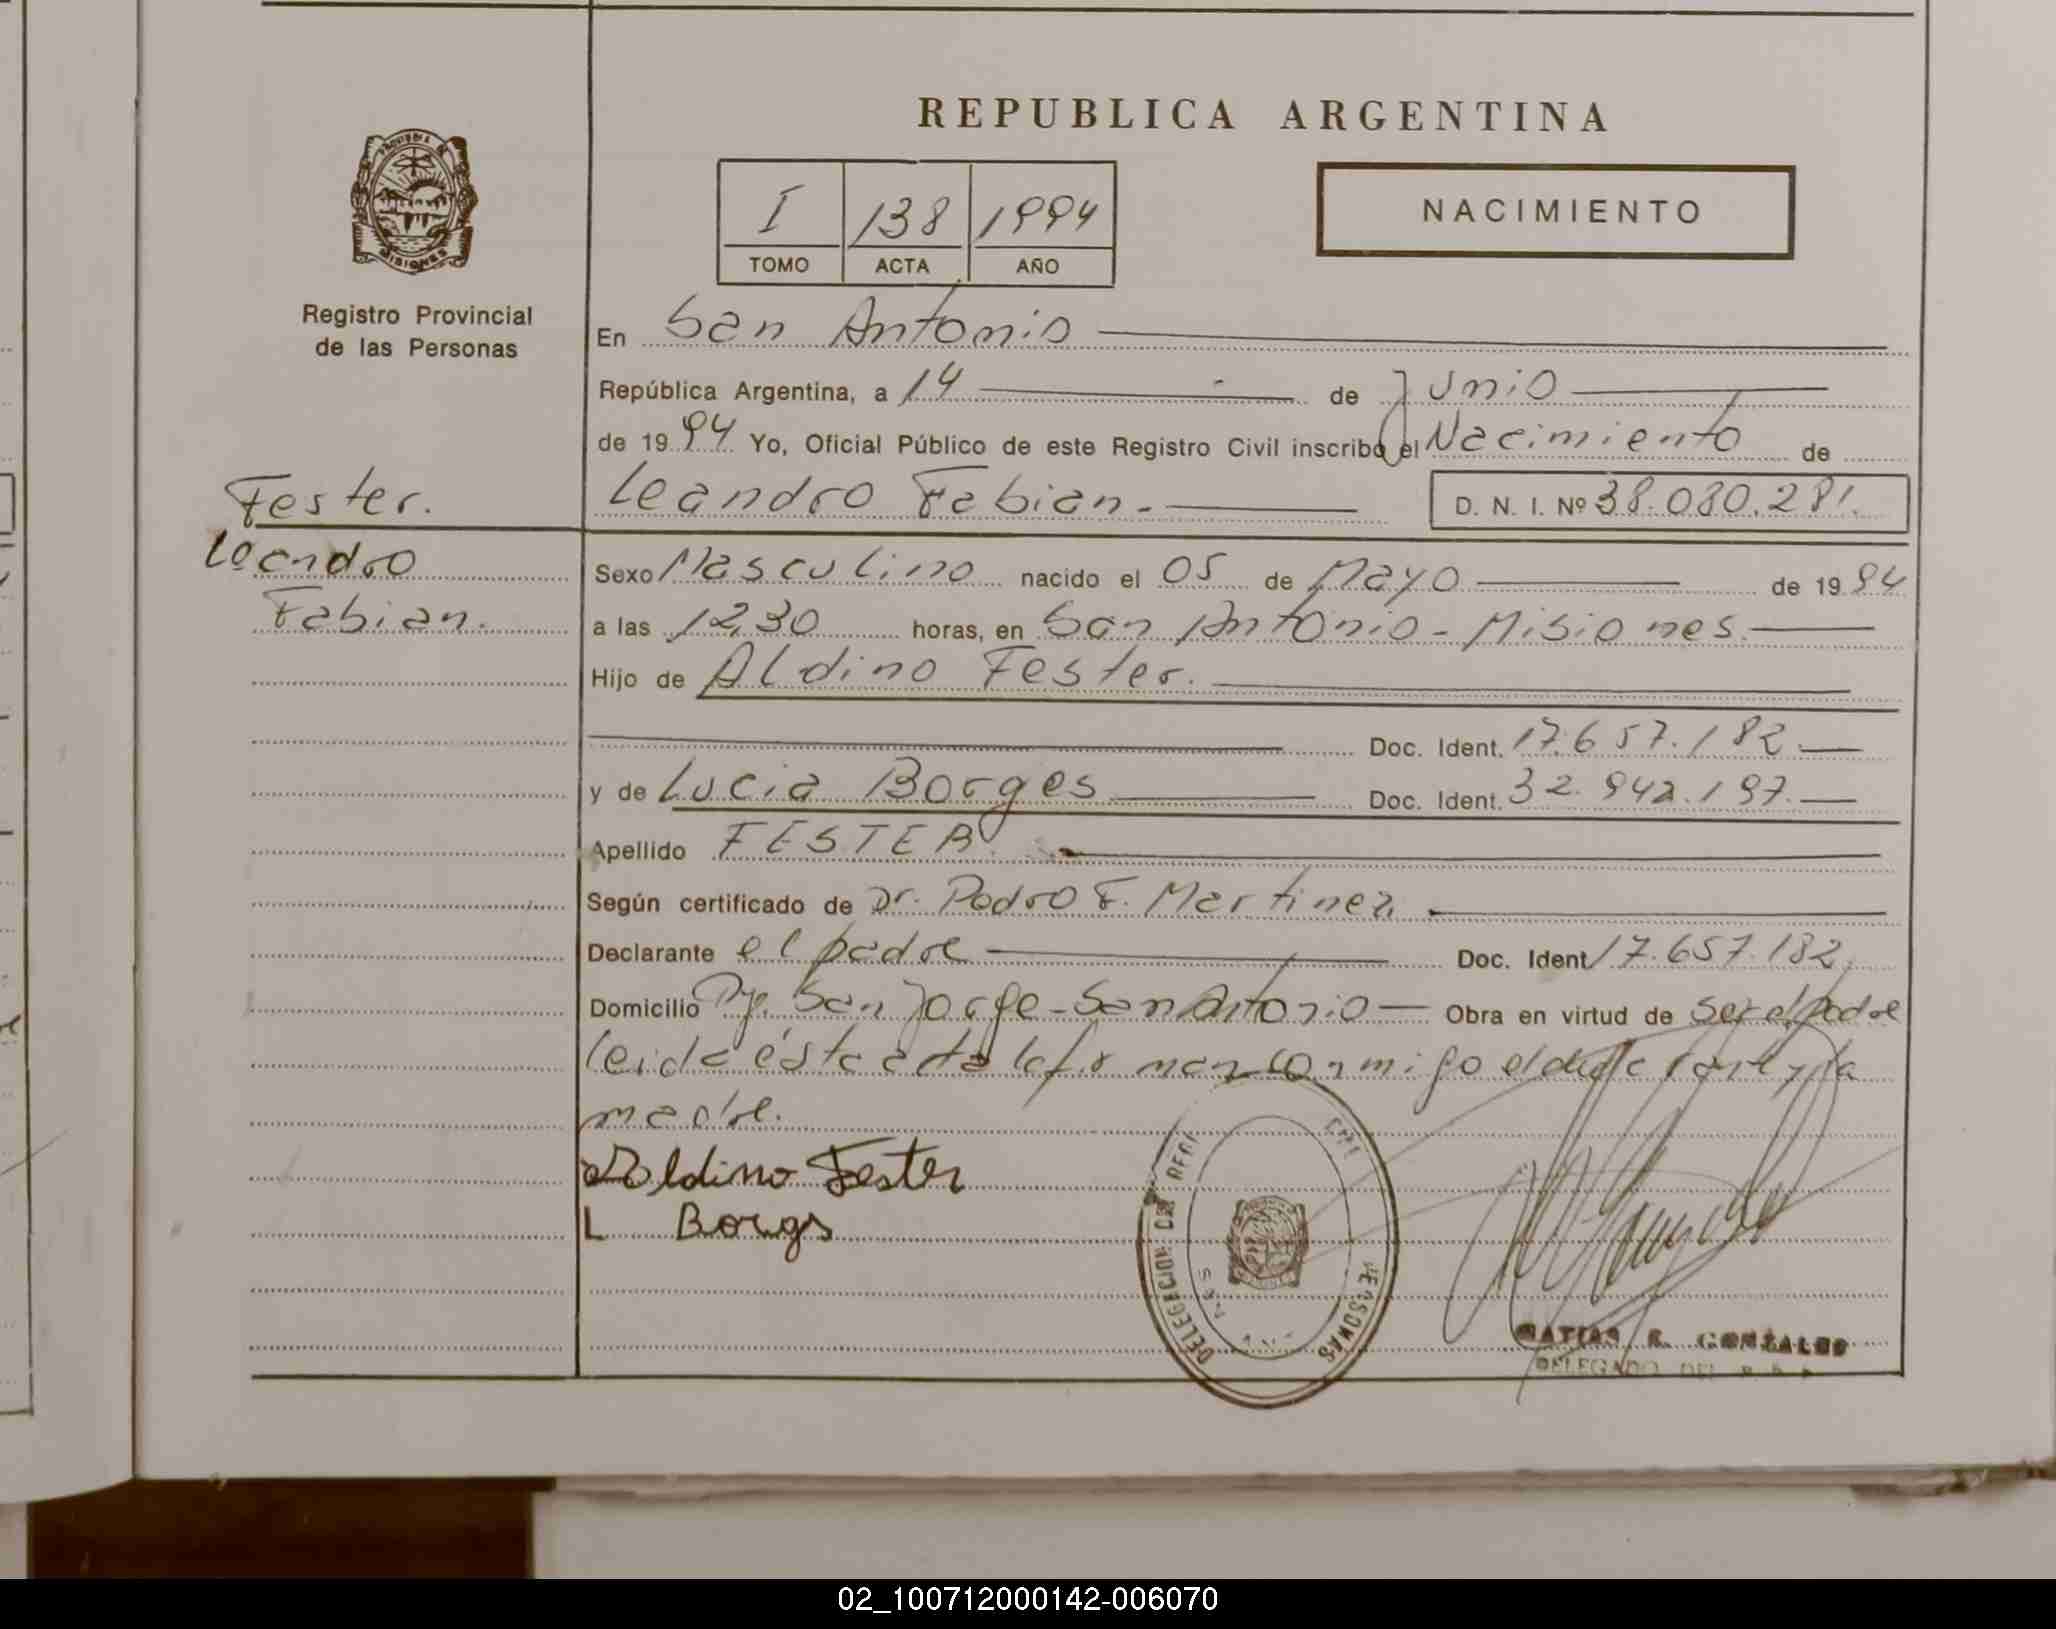 REPUBLICA ARGENTINA
I 138 1994
TOMO ACTA AÑO
NACIMIENTO
MISIONES
Registro Provincial
de las Personas
En San Antonio
República Argentina, a 14 de Junio
de 1994 Yo, Oficial Público de este Registro Civil inscribo el Nacimiento de
Leandro Fabian.- D. N. I. Nº 38.080.281.
Fester.
Leandro
Fabian.
Sexo Masculino nacido el 05 de Mayo de 1994
a las 12,30 horas, en San Antonio - Misiones.
Hijo de Aldino Fester.
Doc. Ident. 17.657.182.
y de Lucia Borges Doc. Ident. 32.942.197.
Apellido FESTER.
Según certificado de Dr. Pedro F. Martinez
Declarante el padre Doc. Ident 17.657.182.
Domicilio Pje. San Jorge - San Antonio Obra en virtud de ser el padre
leida ésta acta la firman conmigo el declarante y la
madre.
Aldino Fester
L Borgs
DELEGACION DEL PERSONAS
SAN ANT
MATIAS R. GONZALES
DELEGADO DEL R. P.
02_100712000142-006070